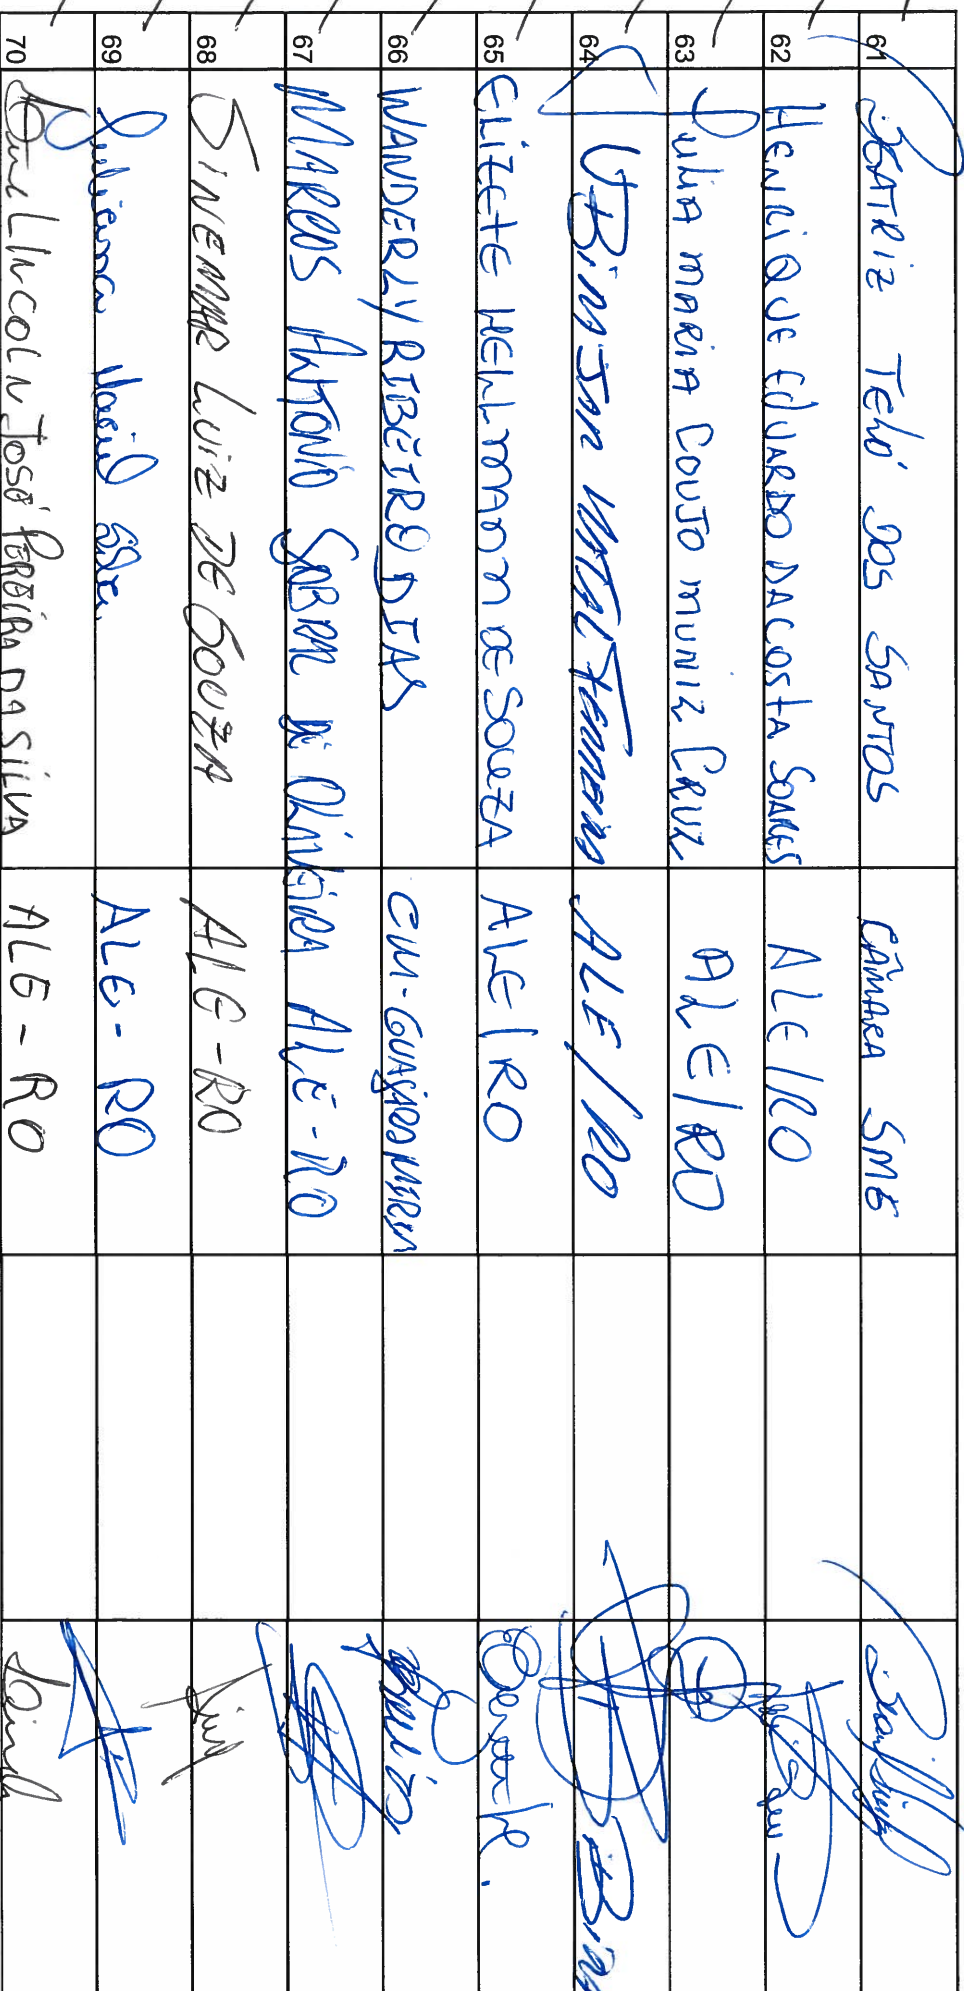 61 BEATRIZ TELÓ DOS SANTOS CÂMARA SMG
62 HENRIQUE EDUARDO DA COSTA SOARES ALE/RO
63 JULIA MARIA COUTO MUNIZ CRUZ ALE/RO
64 UBIRAJAR ALE/RO
65 ELIZETE HELLMANN DE SOUZA ALE/RO
66 WANDERLY RIBEIRO DIAS CM-GUAJARÁ MIRIM
67 MARCOS ANTONIO DE OLIVEIRA ALE-RO
68 SINEMAR LUIZ DE SOUZA ALE-RO
69 Juliana Maciel ALE-RO
70 LINCOLN JOSÉ PEREIRA DA SILVA ALE-RO